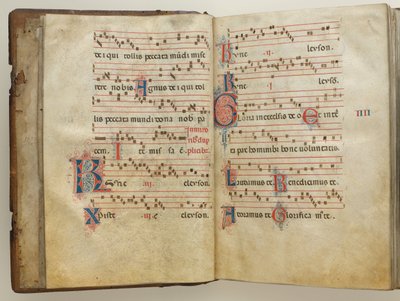 de i qui tollis peccata mũdi mise
rere nobis Agnus de i qui tol
lis peccata mundi dona nob pa
cem. Ite mis sa ē.
Kyrie .iij. eleyson.
Xpiste .iij. eleyson
Kyrie .ij. leyson.
Kyrie .ij. leysõ.
Gloria in excelsis de o Et in tr̃
ti pax hominibus bone voluntatis.
Laudamus te. Benedicimus te.
Adoramus te. Glorifica m⁹ te.
IIII